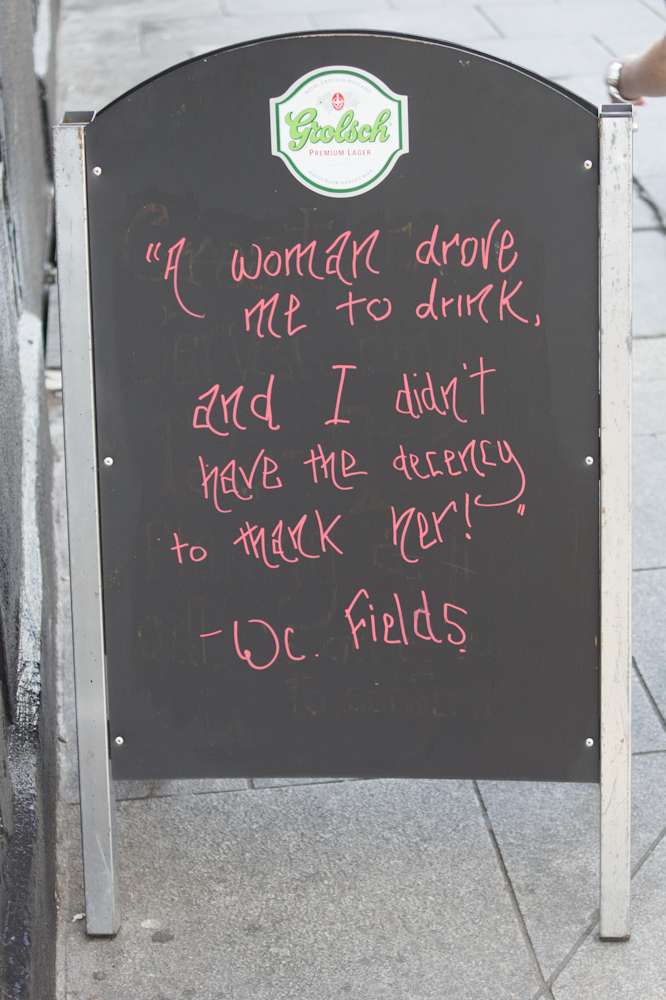 Grolsch
PREMIUM LAGER
"A woman drove
me to drink,
and I didn't
have the decency
to thank her!"
- WC. Fields